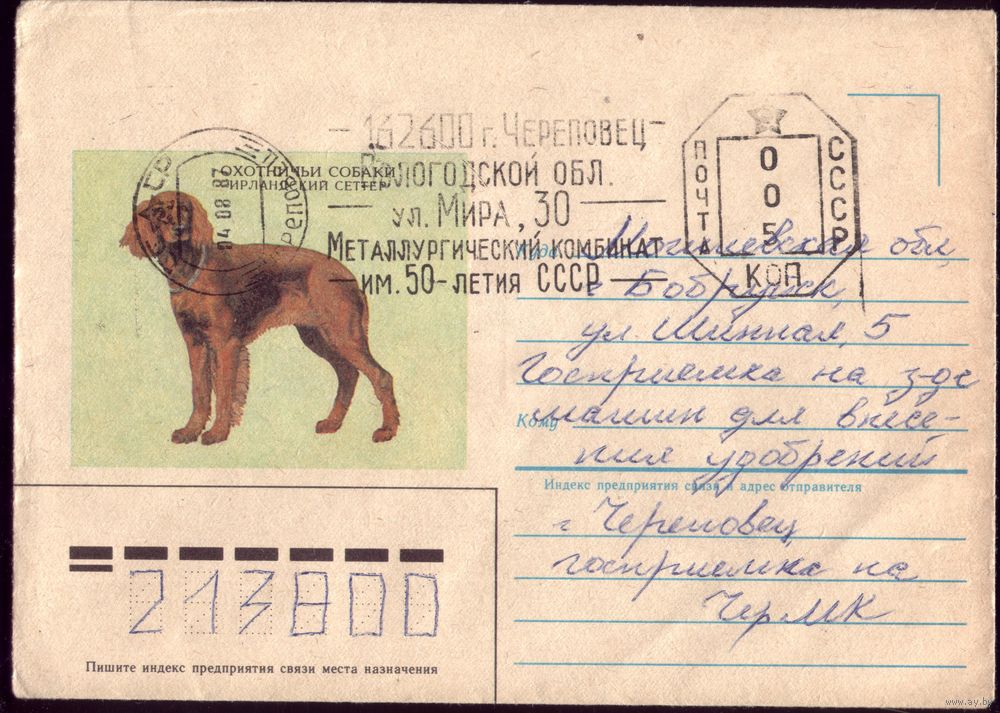 162600 г. ЧЕРЕПОВЕЦ
ВОЛОГОДСКОЙ ОБЛ.
УЛ. МИРА, 30
МЕТАЛЛУРГИЧЕСКИЙ КОМБИНАТ
ИМ. 50-ЛЕТИЯ СССР
ПОЧТА
005
КОП
СССР
ОХОТНИЧЬИ СОБАКИ
ИРЛАНДСКИЙ СЕТТЕР
04 08 87
Куда Могилевская обл,
г Бобруйск,
ул. Шинная, 5
Госприемка на з-де
Кому машин для внесе-
ния удобрений
Индекс предприятия связи и адрес отправителя
г Череповец
госприемка на
ЧерМК
213800
Пишите индекс предприятия связи места назначения
www.ay.by